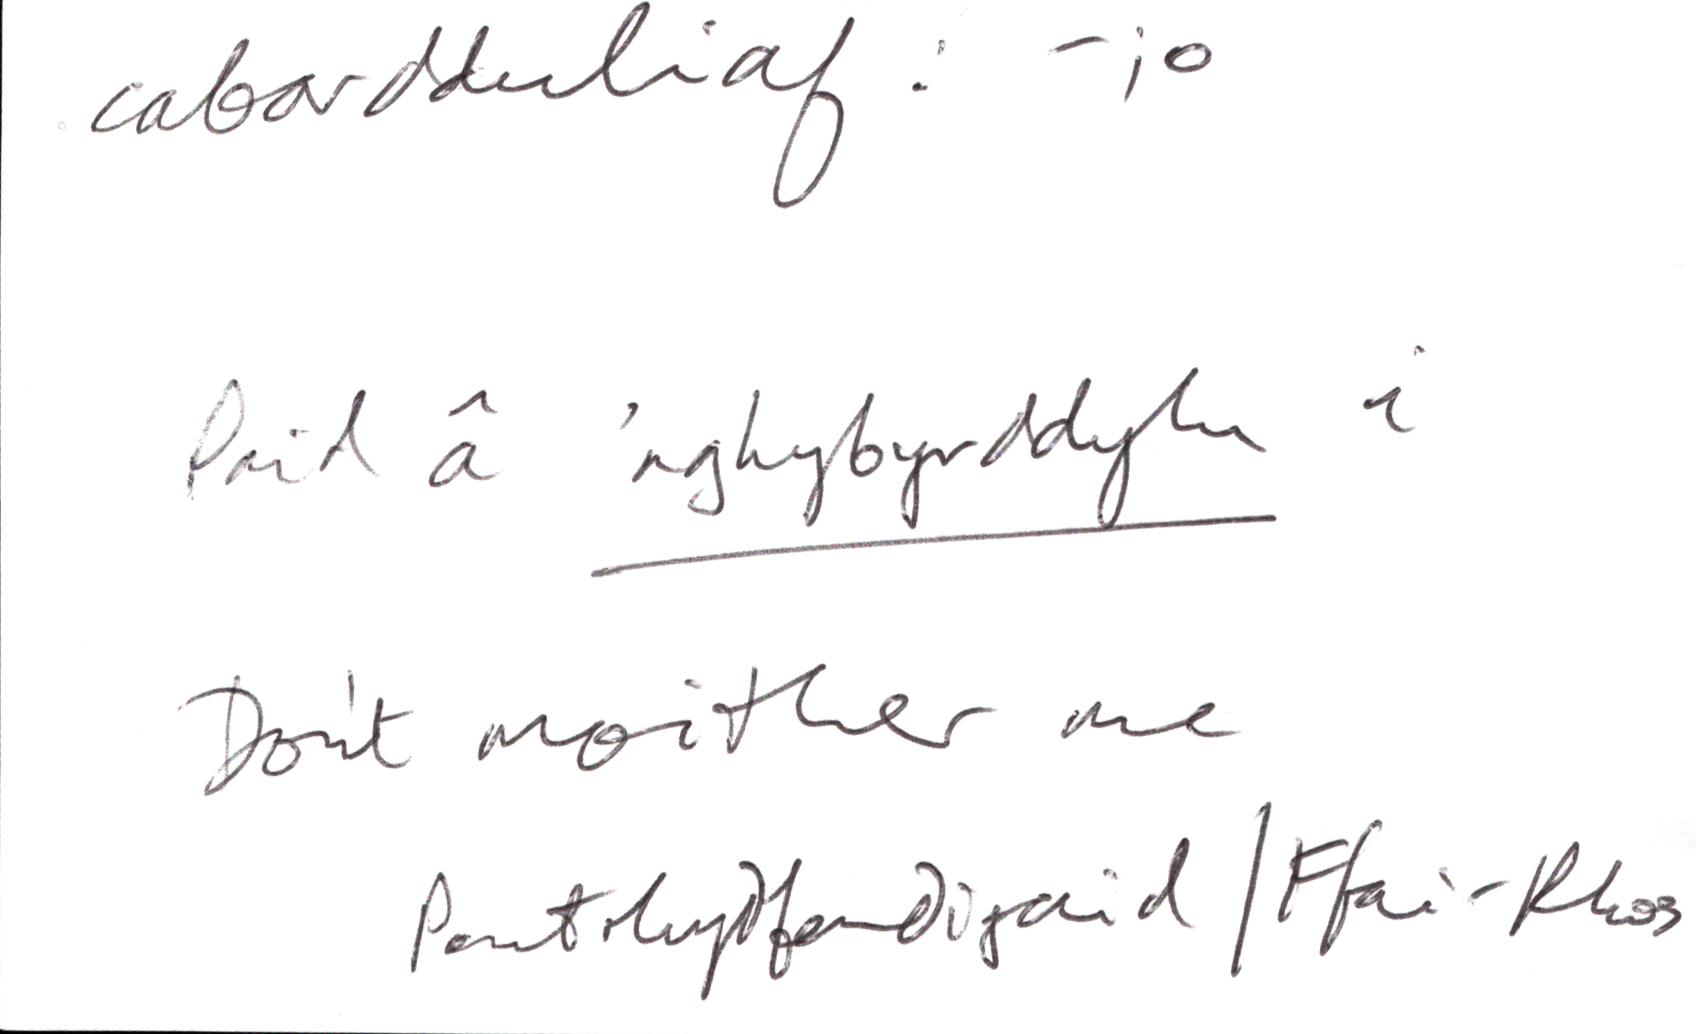 cabardduliaf : -io
Paid â 'nghybyrddylu i
Don't moither me
Pontrhydfendigaid / Ffair-Rhos